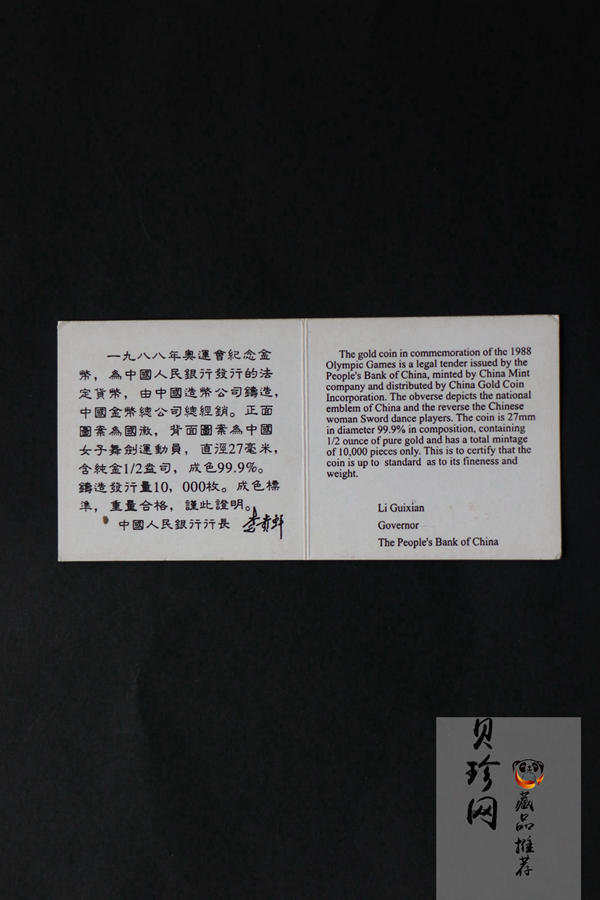 一九八八年奧運會紀念金
幣，為中國人民銀行發行的法
定貨幣，由中國造幣公司鑄造，
中國金幣總公司總經銷。正面
圖案為國徽，背面圖案為中國
女子舞劍運動員，直徑27毫米，
含純金1/2盎司，成色99.9%。
鑄造發行量10，000枚。成色標
準，重量合格，謹此證明。
中國人民銀行行長 李貴鲜
The gold coin in commemoration of the 1988
Olympic Games is a legal tender issued by the
People's Bank of China, minted by China Mint
company and distributed by China Gold Coin
Incorporation. The obverse depicts the national
emblem of China and the reverse the Chinese
woman Sword dance players. The coin is 27mm
in diameter 99.9% in composition, containing
1/2 ounce of pure gold and has a total mintage
of 10,000 pieces only. This is to certify that the
coin is up to standard as to its fineness and
weight.
Li Guixian
Governor
The People's Bank of China
贝珍网
藏品推荐